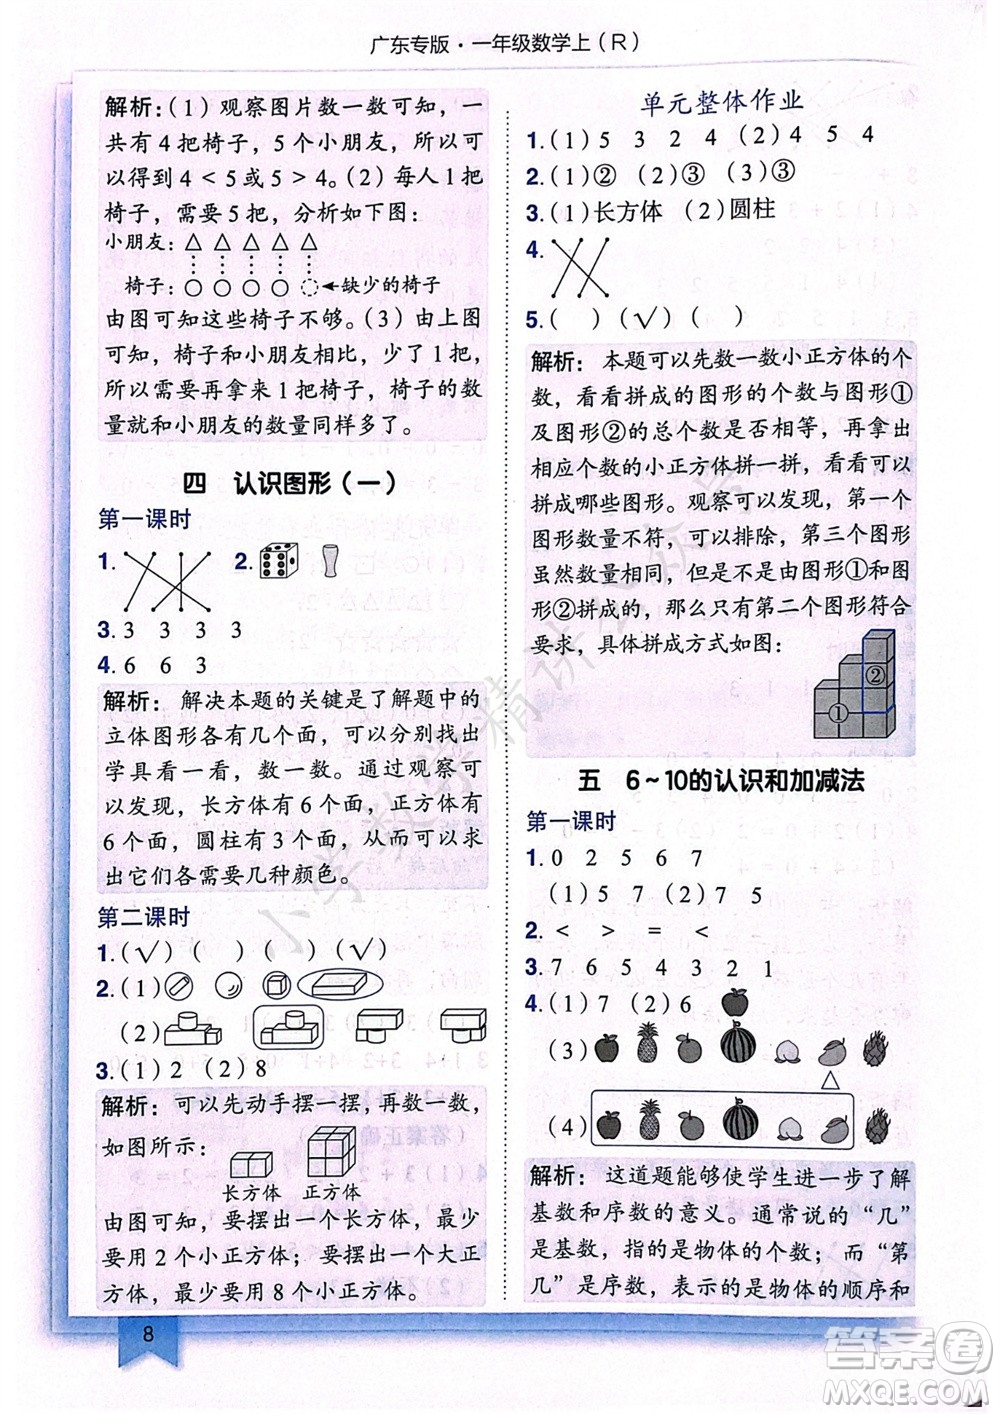 广东专版·一年级数学上(R)
解析:(1)观察图片数一数可知,一
共有4把椅子,5个小朋友,所以可
以得到4<5或5>4。(2)每人1把
椅子,需要5把,分析如下图:
小朋友:△ △ △ △ △
椅子:○ ○ ○ ○ ○←缺少的椅子
由图可知这些椅子不够。(3)由上图
可知,椅子和小朋友相比,少了1把,
所以需要再拿来1把椅子,椅子的数
量就和小朋友的数量同样多了。
四 认识图形(一)
第一课时
1.
2.
3. 3 3 3 3
4. 6 6 3
解析:解决本题的关键是了解题中的
立体图形各有几个面,可以分别找出
学具看一看,数一数。通过观察可
以发现,长方体有6个面,正方体有
6个面,圆柱有3个面,从而可以求
出它们各需要几种颜色。
第二课时
1.(√) ( ) ( ) (√)
2.(1)
(2)
3.(1)2 (2)8
解析:可以先动手摆一摆,再数一数,
如图所示:
长方体 正方体
由图可知,要摆出一个长方体,最少
要用2个小正方体;要摆出一个大正
方体,最少要用8个小正方体。
8
单元整体作业
1.(1)5 3 2 4 (2)4 5 4
2.(1)② (2)③ (3)③
3.(1)长方体 (2)圆柱
4.
5.( ) (√) ( )
解析:本题可以先数一数小正方体的个
数,看看拼成的图形的个数与图形①
及图形②的总个数是否相等,再拿出
相应个数的小正方体拼一拼,看看可以
拼成哪些图形。观察可以发现,第一个
图形数量不符,可以排除,第三个图形
虽然数量相同,但是不是由图形①和图
形②拼成的,那么只有第二个图形符合
要求,具体拼成方式如图:
① ②
五 6~10的认识和加减法
第一课时
1. 0 2 5 6 7
(1)5 7 (2)7 5
2. < > = <
3. 7 6 5 4 3 2 1
4.(1)7 (2)6
(3)
△
(4)
解析:这道题能够使学生进一步了解
基数和序数的意义。通常说的“几”
是基数,指的是物体的个数;而“第
几”是序数,表示的是物体的顺序和
小学数学精讲公众号
答案圈
MXQE.COM